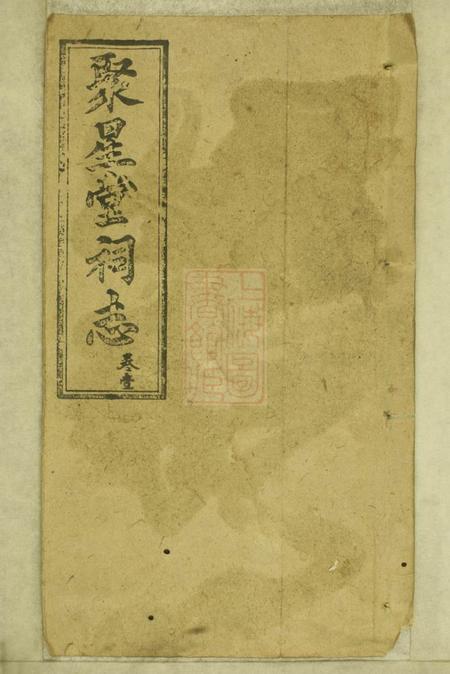 聚星堂祠志
卷壹
上海圖
書館藏